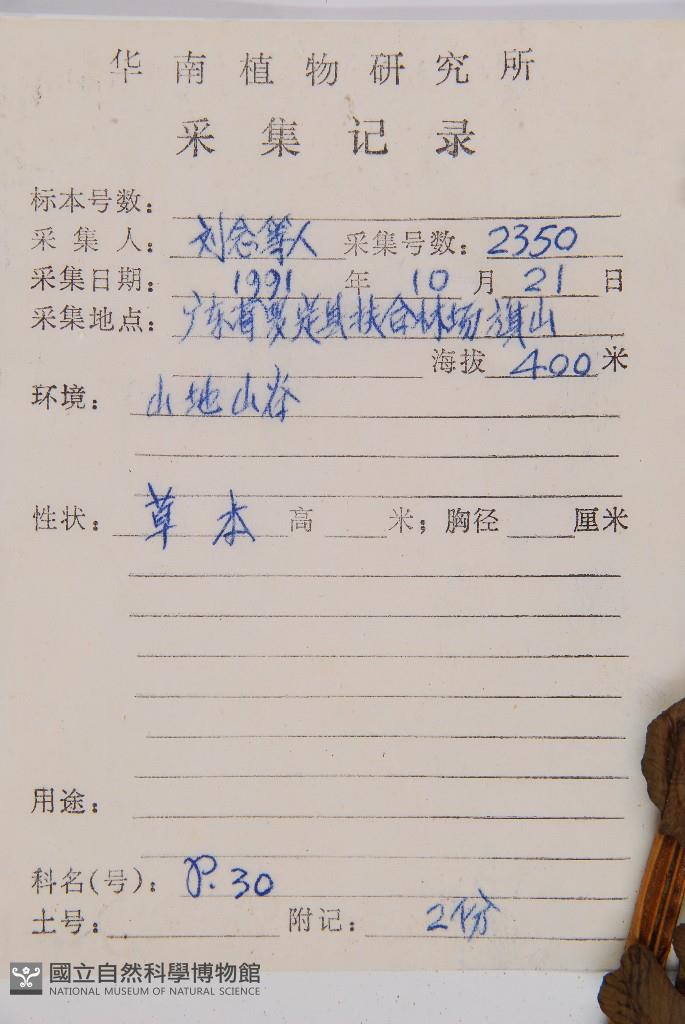 华南植物研究所
采集记录
标本号数：
采集人：刘念等人 采集号数：2350
采集日期：1991年10月21日
采集地点：广东省罗定县扶合林场旗山
海拔 400 米
环境：山地山谷
性状：草本 高 米；胸径 厘米
用途：
科名(号)：P.30
土号： 附记：2份
國立自然科學博物館
NATIONAL MUSEUM OF NATURAL SCIENCE